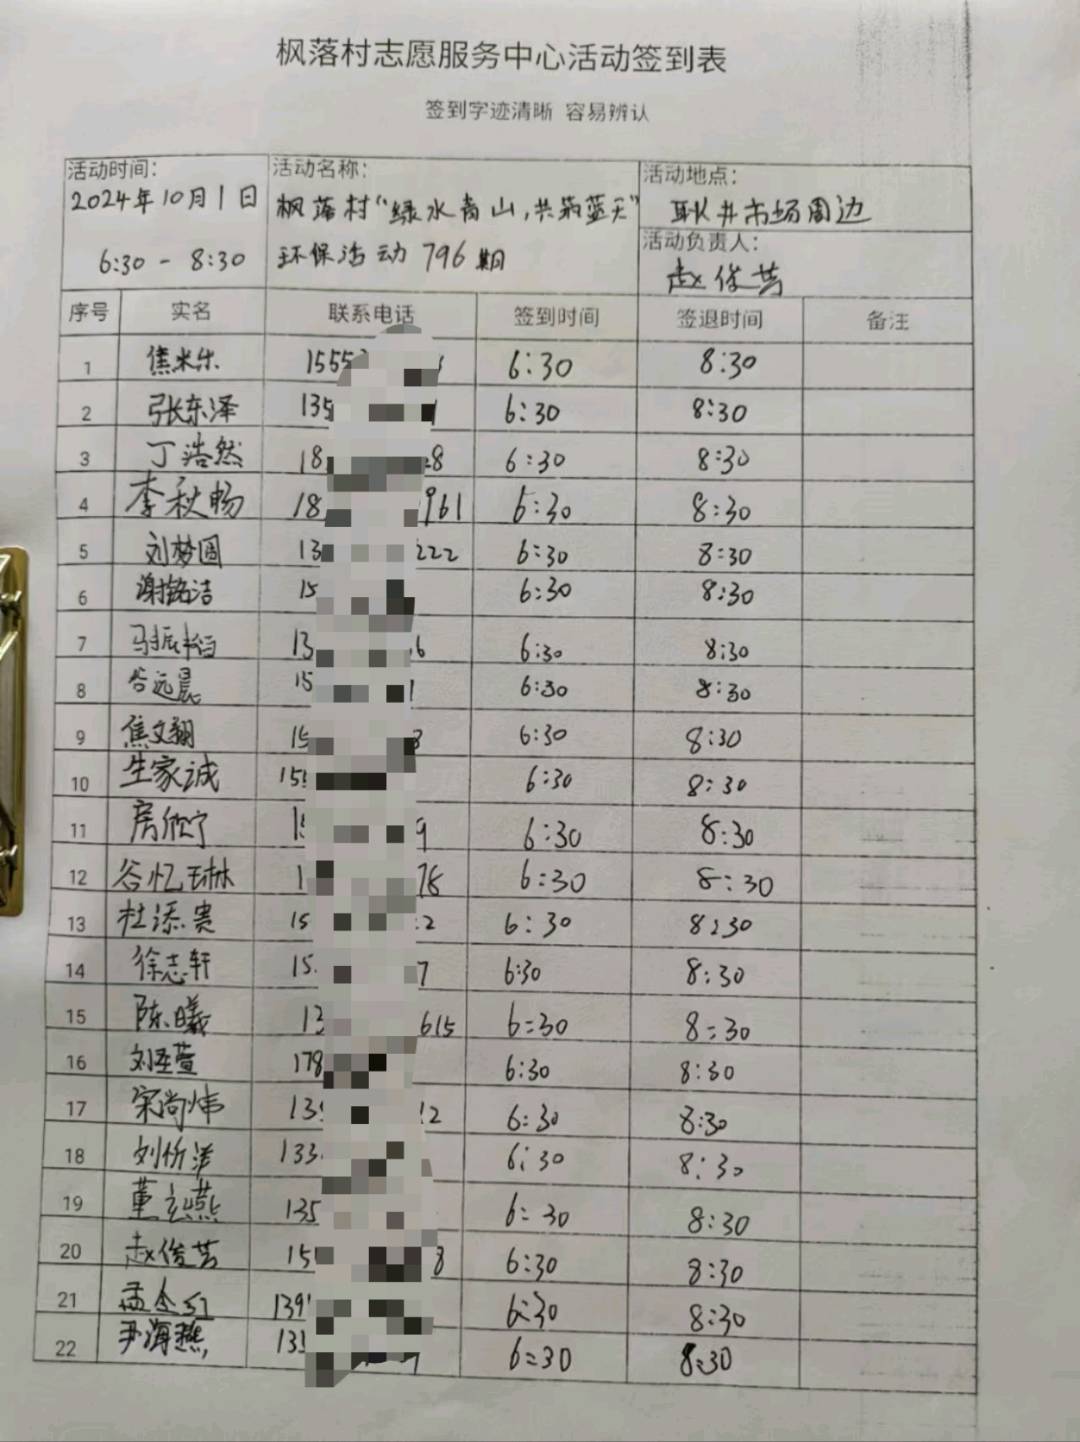 枫落村志愿服务中心活动签到表
签到字迹清晰 容易辨认
活动时间: 活动名称: 活动地点:
2024年10月1日 枫落村“绿水青山,共筑蓝天” 耿井市场周边
6:30 - 8:30 环保活动 796期 活动负责人:
赵俊芳
序号 实名 联系电话 签到时间 签退时间 备注
1 焦米乐 1555 6:30 8:30
2 张东泽 135 6:30 8:30
3 丁浩然 18 28 6:30 8:30
4 李秋畅 18 961 6:30 8:30
5 刘梦圆 13 222 6:30 8:30
6 谢铭洁 15 6:30 8:30
7 马振 13 6 6:30 8:30
8 谷远晨 15 1 6:30 8:30
9 焦文翔 15 8 6:30 8:30
10 生家诚 155 6:30 8:30
11 房欣宁 15 9 6:30 8:30
12 谷忆琳 1 78 6:30 8:30
13 杜添贵 15 2 6:30 8:30
14 徐志轩 15 7 6:30 8:30
15 陈曦 13 615 6:30 8:30
16 刘丞萱 178 6:30 8:30
17 宋尚炜 139 12 6:30 8:30
18 刘忻洋 133 6:30 8:30
19 董燕 135 6:30 8:30
20 赵俊芳 15 8 6:30 8:30
21 孟令 139 6:30 8:30
22 尹海燕 135 6:30 8:30